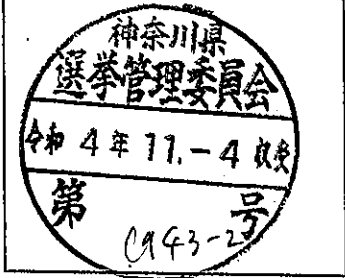 神奈川県
選挙管理委員会
令和 4年 11.-4 収受
第 号
(943-2)